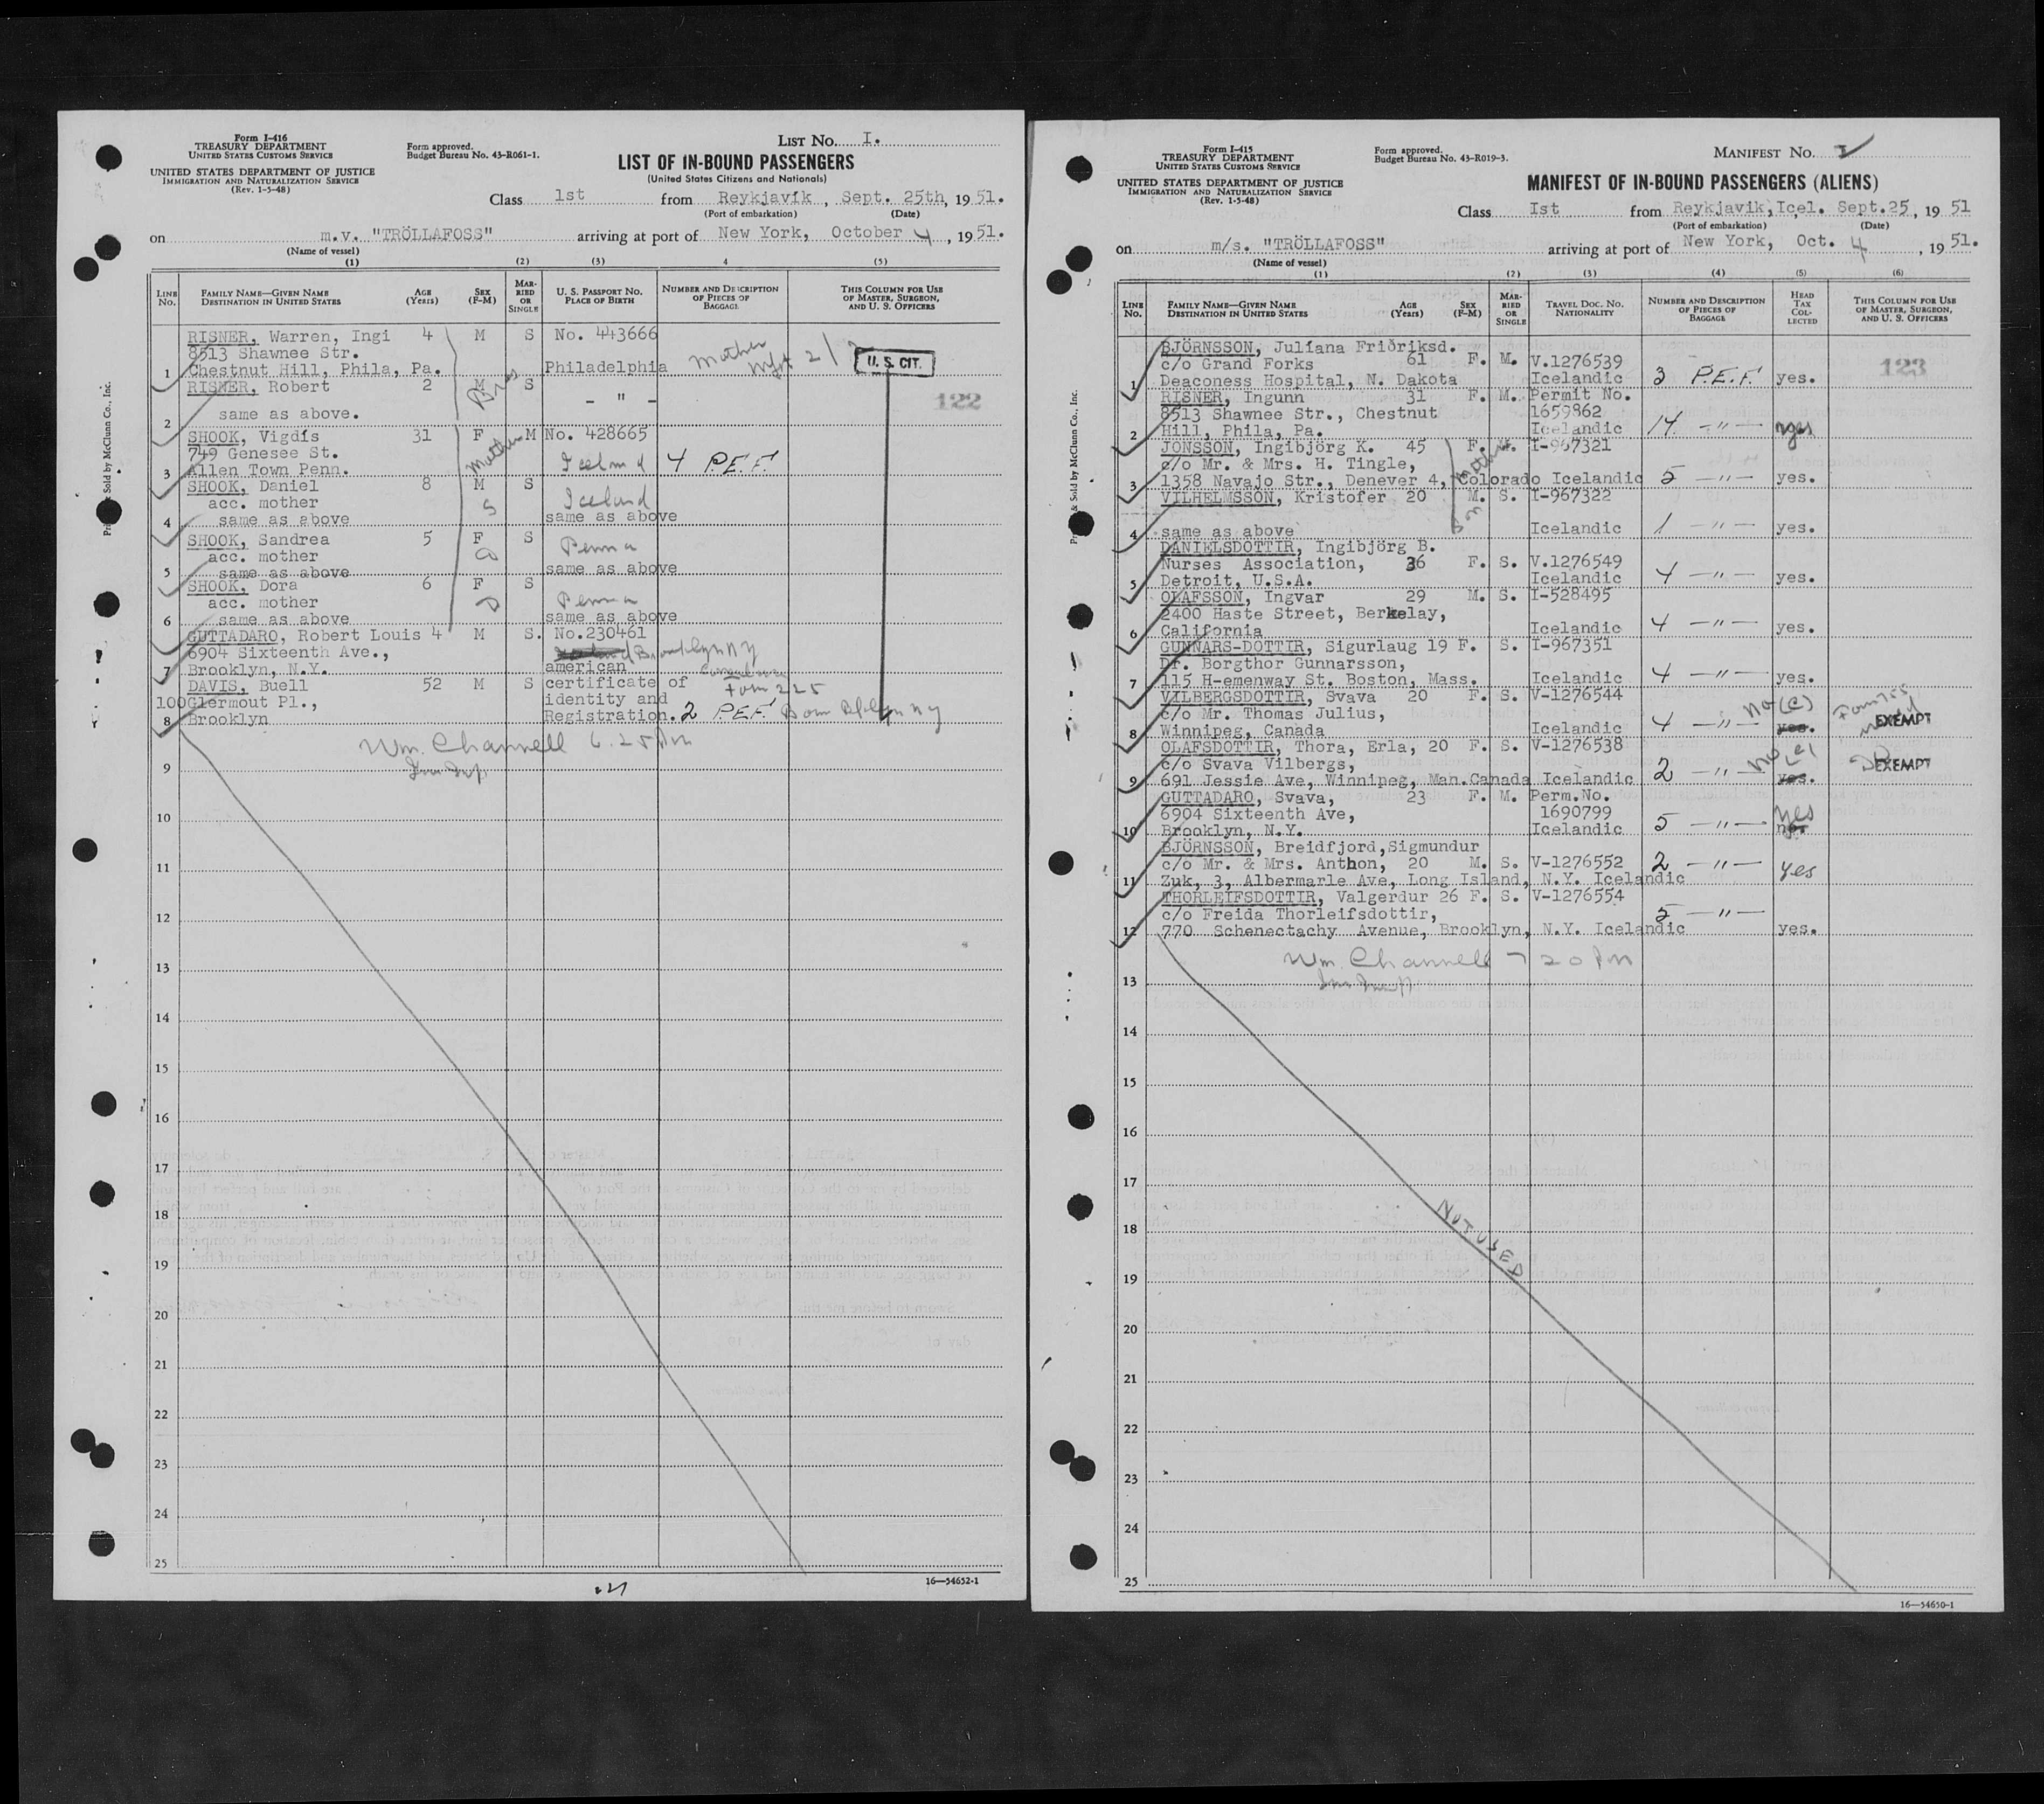 Form I-416
TREASURY DEPARTMENT
UNITED STATES CUSTOMS SERVICE
UNITED STATES DEPARTMENT OF JUSTICE
IMMIGRATION AND NATURALIZATION SERVICE
(Rev. 1-5-48)
Form approved.
Budget Bureau No. 43-R061-1.
LIST NO. I.
LIST OF IN-BOUND PASSENGERS
(United States Citizens and Nationals)
Class 1st from Reykjavík, Sept. 25th, 1951.
(Port of embarkation) (Date)
on m.v. "TRÖLLAFOSS" arriving at port of New York, October 4, 1951.
(Name of vessel)
(1) (2) (3) 4 (5)
LINE No. FAMILY NAME—GIVEN NAME DESTINATION IN UNITED STATES AGE (Years) SEX (F-M) MARRIED OR SINGLE U. S. PASSPORT NO. PLACE OF BIRTH NUMBER AND DESCRIPTION OF PIECES OF BAGGAGE THIS COLUMN FOR USE OF MASTER, SURGEON, AND U. S. OFFICERS
RISNER, Warren, Ingi 4 M S No. 443666
8513 Shawnee Str.
1 Chestnut Hill, Phila, Pa. Philadelphia Mother U. S. CIT.
RISNER, Robert 2 M S
– " –
122
2 same as above.
SHOOK, Vigdís 31 F Mother M No. 428665
749 Genesee St.
3 Allen Town Penn. Iceland 4 P.E.F.
SHOOK, Daniel 8 M S
acc. mother S Iceland
4 same as above same as above
SHOOK, Sandrea 5 F S
acc. mother D Penna
5 same as above same as above
SHOOK, Dora 6 F S
acc. mother D Penna
6 same as above same as above
GUTTADARO, Robert Louis 4 M S. No.230461
6904 Sixteenth Ave., Brooklyn NY
7 Brooklyn, N.Y. american
DAVIS, Buell 52 M S certificate of Form 225
100 Glermout Pl., identity and
8 Brooklyn Registration. 2 P.E.F. Born Bklyn NY
Wm. Channell 6.25 PM
Imm Insp
9
10
11
12
13
14
15
16
17
18
19
20
21
22
23
24
25
16—54652-1
Print & Sold by McClunn Co., Inc.
Form I-415
TREASURY DEPARTMENT
UNITED STATES CUSTOMS SERVICE
UNITED STATES DEPARTMENT OF JUSTICE
IMMIGRATION AND NATURALIZATION SERVICE
(Rev. 1-5-48)
Form approved.
Budget Bureau No. 43-R019-3.
MANIFEST NO.
MANIFEST OF IN-BOUND PASSENGERS (ALIENS)
Class Ist from Reykjavik, Icel. Sept.25, 1951
(Port of embarkation) (Date)
on m/s. "TRÖLLAFOSS" arriving at port of New York, Oct. 4, 1951.
(Name of vessel)
(1) (2) (3) (4) (5) (6)
LINE No. FAMILY NAME—GIVEN NAME DESTINATION IN UNITED STATES AGE (Years) SEX (F-M) MARRIED OR SINGLE TRAVEL DOC. NO. NATIONALITY NUMBER AND DESCRIPTION OF PIECES OF BAGGAGE HEAD TAX COLLECTED THIS COLUMN FOR USE OF MASTER, SURGEON, AND U. S. OFFICERS
BJÖRNSSON, Julíana Friðriksd.
c/o Grand Forks 61 F. M. V.1276539
1 Deaconess Hospital, N. Dakota Icelandic 3 P.E.F. yes. 123
RISNER, Ingunn 31 F. M. Permit No.
8513 Shawnee Str., Chestnut 1659862
2 Hill, Phila, Pa. Icelandic 14 – " – yes
JONSSON, Ingibjörg K. 45 F. M. I-967321
c/o Mr. & Mrs. H. Tingle, Mother
3 1358 Navajo Str., Denever 4, Colorado Icelandic 5 – " – yes.
VILHELMSSON, Kristofer 20 M. S. I-967322
Son
4 same as above Icelandic 1 – " – yes.
DANIELSDOTTIR, Ingibjörg B.
Nurses Association, 36 F. S. V.1276549
5 Detroit, U.S.A. Icelandic 4 – " – yes.
OLAFSSON, Ingvar 29 M. S. I-528495
2400 Haste Street, Berkelay,
6 California Icelandic 4 – " – yes.
GUNNARS-DOTTIR, Sigurlaug 19 F. S. I-967351
Dr. Borgthor Gunnarsson,
7 115 H-emenway St. Boston, Mass. Icelandic 4 – " – yes.
VILBERGSDOTTIR, Svava 20 F. S. V-1276544
c/o Mr. Thomas Julius, No (e)
8 Winnipeg, Canada Icelandic 4 – " – yes. EXEMPT
OLAFSDOTTIR, Thora, Erla, 20 F. S. V-1276538
c/o Svava Vilbergs, No (e)
9 691 Jessie Ave, Winnipeg, Man.Canada Icelandic 2 – " – yes. EXEMPT
GUTTADARO, Svava, 23 F. M. Perm.No.
6904 Sixteenth Ave, 1690799 yes
10 Brooklyn, N.Y. Icelandic 5 – " – no.
BJÖRNSSON, Breidfjord,Sigmundur
c/o Mr. & Mrs. Anthon, 20 M. S. V-1276552 2 – " – yes
11 Zuk, 3, Albermarle Ave, Long Island, N.Y. Icelandic
THORLEIFSDOTTIR, Valgerdur 26 F. S. V-1276554
c/o Freida Thorleifsdottir, 5 – " –
12 770 Schenectachy Avenue, Brooklyn, N.Y. Icelandic yes.
Wm. Channell 7 20 PM
Imm Insp
13
14
15
16
17
NOT USED
18
19
20
21
22
23
24
25
16—54650-1